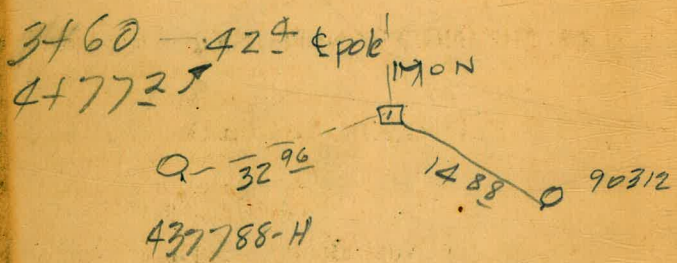 3+60 — 42 4 ℄ pole
4+77 2
MON
32 96
14 88
90312
437788-H